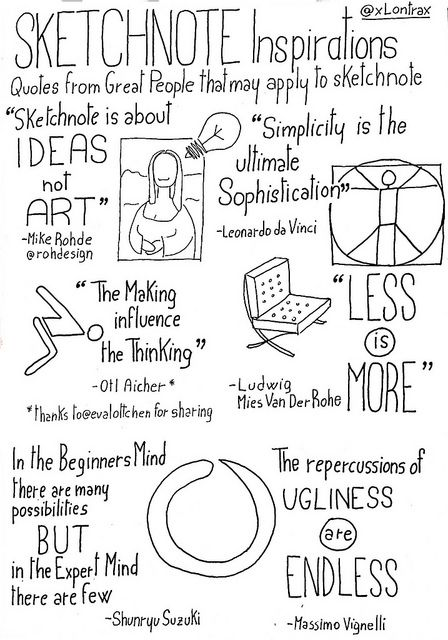 @xLontrax
SKETCHNOTE Inspirations
Quotes from Great People that may apply to sketchnote
"Sketchnote is about
IDEAS
not
ART"
-Mike Rohde
@rohdesign
"Simplicity is the
ultimate
Sophistication"
-Leonardo da Vinci
"The Making
influence
the Thinking"
-Otl Aicher*
*thanks to @evalottchen for sharing
"LESS
is
MORE"
-Ludwig
Mies Van Der Rohe
In the Beginners Mind
there are many
possibilities
BUT
in the Expert Mind
there are few
-Shunryu Suzuki
The repercussions of
UGLINESS
are
ENDLESS
-Massimo Vignelli